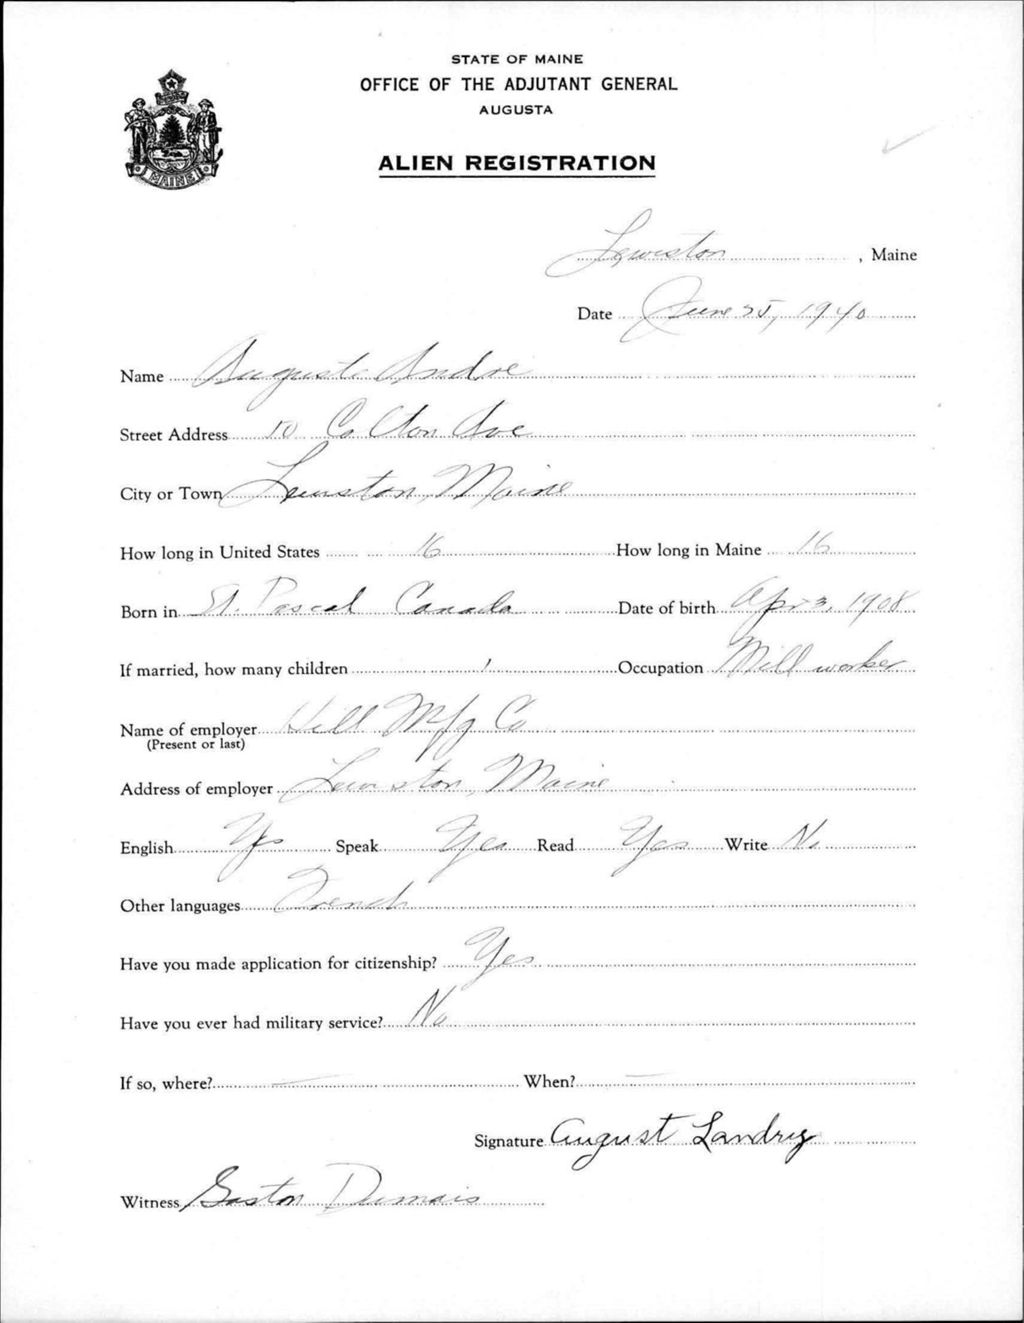 STATE OF MAINE
OFFICE OF THE ADJUTANT GENERAL
AUGUSTA
MAINE
ALIEN REGISTRATION
Lewiston, Maine
Date June 25, 1940
Name Auguste Andre
Street Address 10 Colton Ave
City or Town Lewiston, Maine
How long in United States 16 How long in Maine 16
Born in St. Pascal Canada Date of birth Apr 3, 1908
If married, how many children 1 Occupation Mill worker
Name of employer Hill Mfg Co
(Present or last)
Address of employer Lewiston, Maine
English Yes Speak Yes Read Yes Write No
Other languages French
Have you made application for citizenship? Yes
Have you ever had military service? No
If so, where? — When? —
Signature August Landry
Witness Gaston Dumais